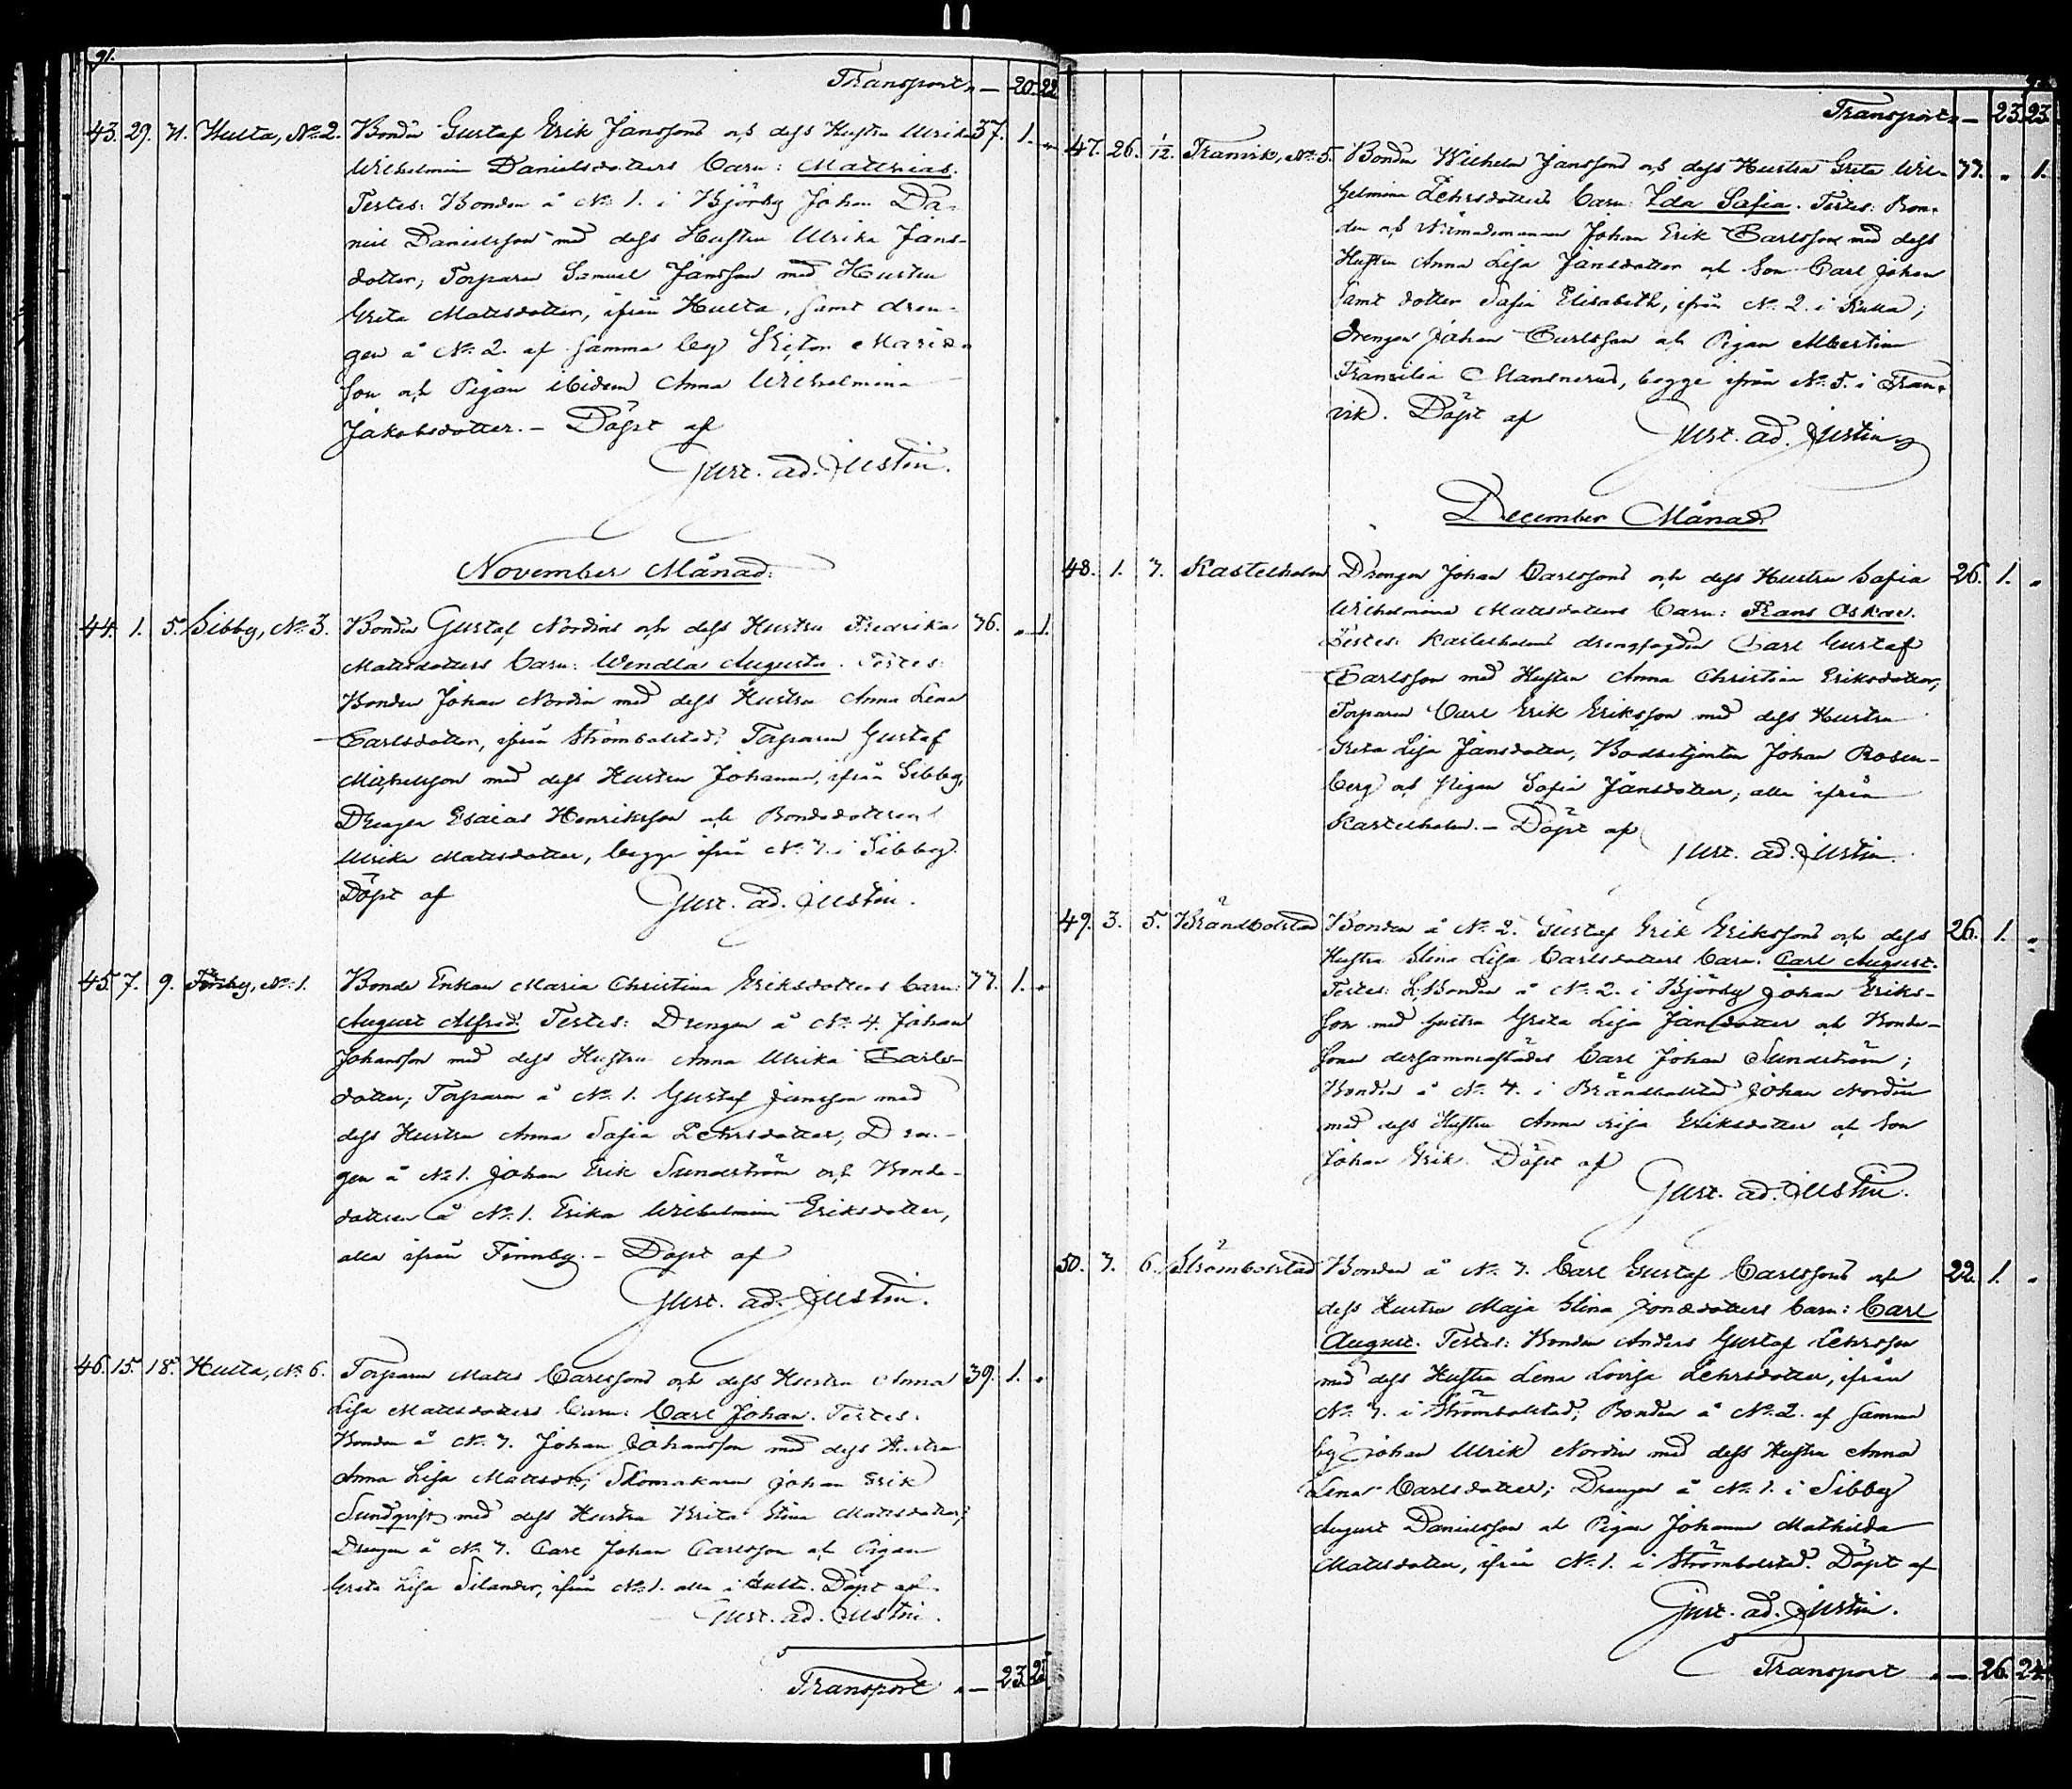 91.
Transport " — 20. 22
43. 29. 31. Hulta, No 2. Bonden Gustaf Erik Janssons och dess Hustru Ulrika 37. 1. "
Wilhelmina Danielsdotters barn: Matthias.
Testes: Bonden å No 1. i Björby Johan Da-
niel Danielsson med dess Hustru Ulrika Jans-
dotter; Torparen Samuel Jansson med Hustru
Greta Matsdotter, ifrån Hulta, samt dren-
gen å No 2. af samma by Matts-
son och Pigan ibidem Anna Wilhelmina
Jakobsdotter. – Döpt af
Gust. Ad. Justin.
November Månad.
44. 1. 5. Sibby, No 3. Bonden Gustaf Nordins och dess Hustru Fredrika 36. " 1.
Matsdotters barn: Wendla Augusta. Testes:
Bonden Johan Nordin med dess Hustru Anna Lena
Carlsdotter, ifrån Strömbolstad; Torparen Gustaf
Michelsson med dess Hustru Johanna, ifrån Sibby,
Drengen Esaias Henriksson och Bondedottren
Ulrika Matsdotter, begge ifrån No 7. i Sibby.
Döpt af Gust. Ad. Justin.
45. 7. 9. Finby, No 1. Bonde Enkan Maria Christina Eriksdotters barn: 37. 1. "
August Alfred. Testes: Drengen å No 4. Johan
Johansson med dess Hustru Anna Ulrika Carls-
dotter; Torparen å No 1. Gustaf Jansson med
dess Hustru Anna Sofia Pehrsdotter, Dren-
gen å No 1. Johan Erik Sundström och Bonde-
dottren å No 1. Erika Wilhelmina Eriksdotter,
alla ifrån Finnby. – Döpt af
Gust. Ad. Justin.
46. 15. 18. Hulta, No 6. Torparen Mats Carlssons och dess Hustru Anna 39. 1. "
Lisa Matsdotters barn: Carl Johan. Testes:
Bonden å No 7. Johan Johansson med dess Hustru
Anna Lisa Matsdr; Skomakaren Johan Erik
Sundqvist med dess Hustru Brita Stina Matsdotter;
Drengen å No 7. Carl Johan Carlsson och Pigan
Greta Lisa Silander, ifrån No 1. alla i Hulta. Döpt af
Gust. Ad. Justin.
Transport " — 23. 23
Transport " — 23. 23.
47. 26. 1/12. Tranvik, No 5. Bonden Wilhelm Janssons och dess Hustru Greta Wil- 33. " 1.
helmina Pehrsdotters barn: Ida Sofia. Testes: Bon-
den och Nämndemannen Johan Erik Carlsson med dess
Hustru Anna Lisa Jansdotter och Son Carl Johan
samt dotter Sofia Elisabeth, ifrån No 2. i
Drengen Johan Carlsson och Pigan Albertina
begge ifrån No 5. i Tran-
vik. Döpt af Gust. Ad. Justin
December Månad.
48. 1. 7. Kastelholm Drengen Johan Carlssons och dess Hustru Sofia 26. 1. "
Wilhelmina Matsdotters barn: Frans Oskar.
Testes: Kastelholms drengfogden Carl Gustaf
Carlsson med Hustru Anna Christina Eriksdotter,
Torparen Carl Erik Eriksson med dess Hustru
Greta Lisa Jansdotter, Bodbetjenten Johan Rosen-
berg och pigan Sofia Jansdotter; alla ifrån
Kastelholm. – Döpt af
Gust. Ad. Justin.
49. 3. 5. Brändbolstad Bonden å No 2. Gustaf Erik Erikssons och dess 26. 1. "
Hustru Stina Lisa Carlsdotters barn: Carl August.
Testes: Bonden å No 2. i Björby Johan Eriks-
son med hustru Greta Lisa Jansdotter och Bonde-
sonen dersammastädes Carl Johan Sundström;
Bonden å No 4. i Brändbolstad Johan Nordin
med dess Hustru Anna Lisa Eriksdotter och Son
Johan Erik. Döpt af
Gust. Ad. Justin.
50. 7. 6. Strömbolstad Bonden å No 7. Carl Gustaf Carlssons och 22. 1. "
dess Hustru Maja Stina Jansdotters barn: Carl
August. Testes: Bonden Anders Gustaf Pehrsson
med dess Hustru Lena Lovisa Pehrsdotter, ifrån
No 7. i Strömbolstad; Bonden å No 2. af samma
by Johan Ulrik Nordin med dess Hustru Anna
Lena Carlsdotter; Drengen å No 1. i Sibby
August Danielsson och Pigan Johanna Mathilda
Matsdotter, ifrån No 1. i Strömbolstad. Döpt af
Gust. Ad. Justin.
Transport " — 26. 24